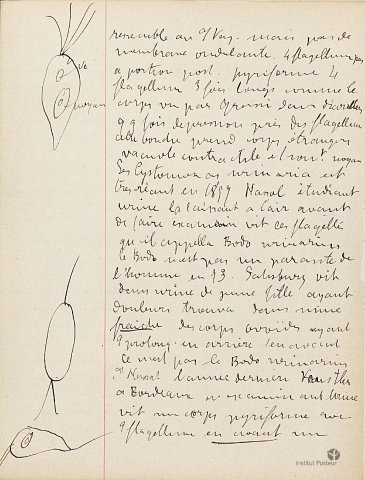 ressemble au Vag. mais pas de
membrane ondulante. 4 flagellum pas
a portion post. pyriforme 4
flagellum 3 fois longs comme le
corps vu par Grassi dans
qq fois depression près des flagellum
prend corps étrangers
vacuole contractile et noyau
Le Cystomonas urinaria est
très récent en 1859 Hassal étudiant
urine la laissant à l'air avant
de faire examen vit ces flagellés
qu'il appella Bodo urinarius
le Bodo n'est pas un parasite de
l'homme en 93. Salisbury vit
dans urine de jeune fille ayant
douleurs trouva dans urine
fraîche des corps ovoïdes ayant
2 prolong. en arrière 1 en avant
Ce n'est pas le Bodo urinarius
de Hassal l'année dernière Kunstler
a Bordeaux examinant urine
vit un corps pyriforme avec
flagellum en avant un
v.c
noyau
Institut Pasteur